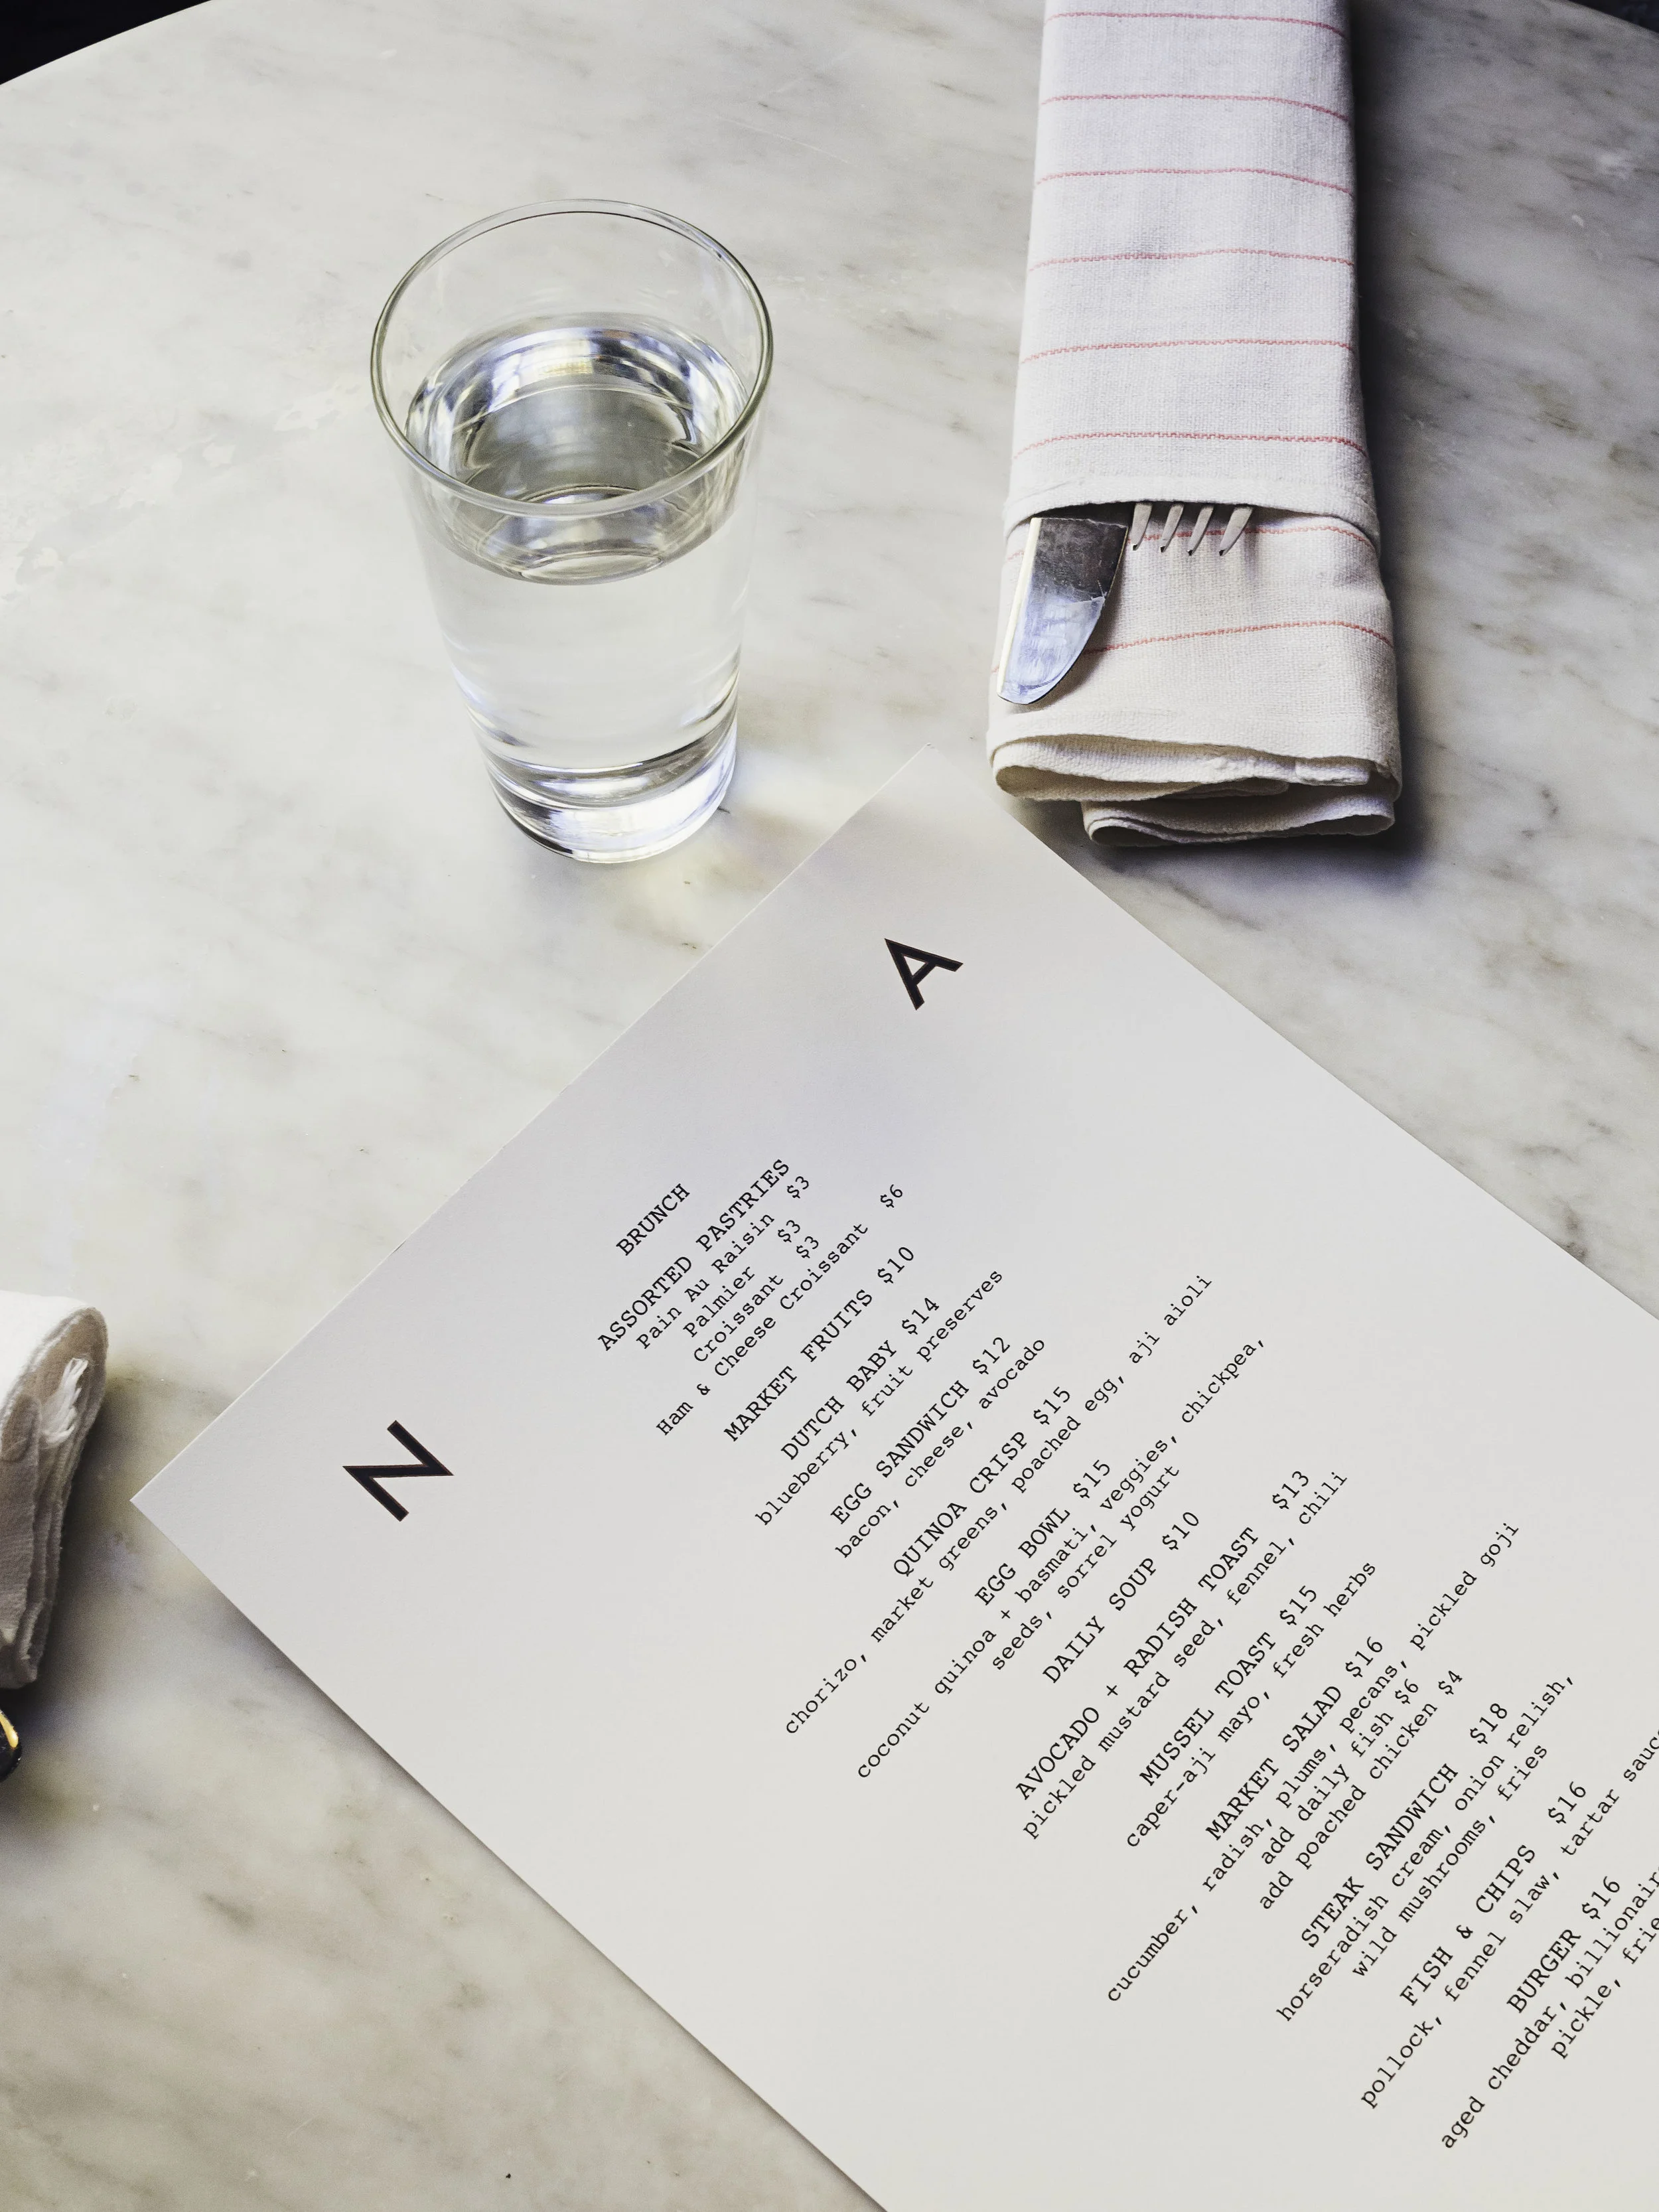 N A
BRUNCH
ASSORTED PASTRIES
Pain Au Raisin $3
Palmier $3
Croissant $3
Ham & Cheese Croissant $6
MARKET FRUITS $10
DUTCH BABY $14
blueberry, fruit preserves
EGG SANDWICH $12
bacon, cheese, avocado
QUINOA CRISP $15
chorizo, market greens, poached egg, aji aioli
EGG BOWL $15
coconut quinoa + basmati, veggies, chickpea,
seeds, sorrel yogurt
DAILY SOUP $10
AVOCADO + RADISH TOAST $13
pickled mustard seed, fennel, chili
MUSSEL TOAST $15
caper-aji mayo, fresh herbs
MARKET SALAD $16
cucumber, radish, plums, pecans, pickled goji
add daily fish $6
add poached chicken $4
STEAK SANDWICH $18
horseradish cream, onion relish,
wild mushrooms, fries
FISH & CHIPS $16
pollock, fennel slaw, tartar
BURGER $16
aged cheddar,
pickle,